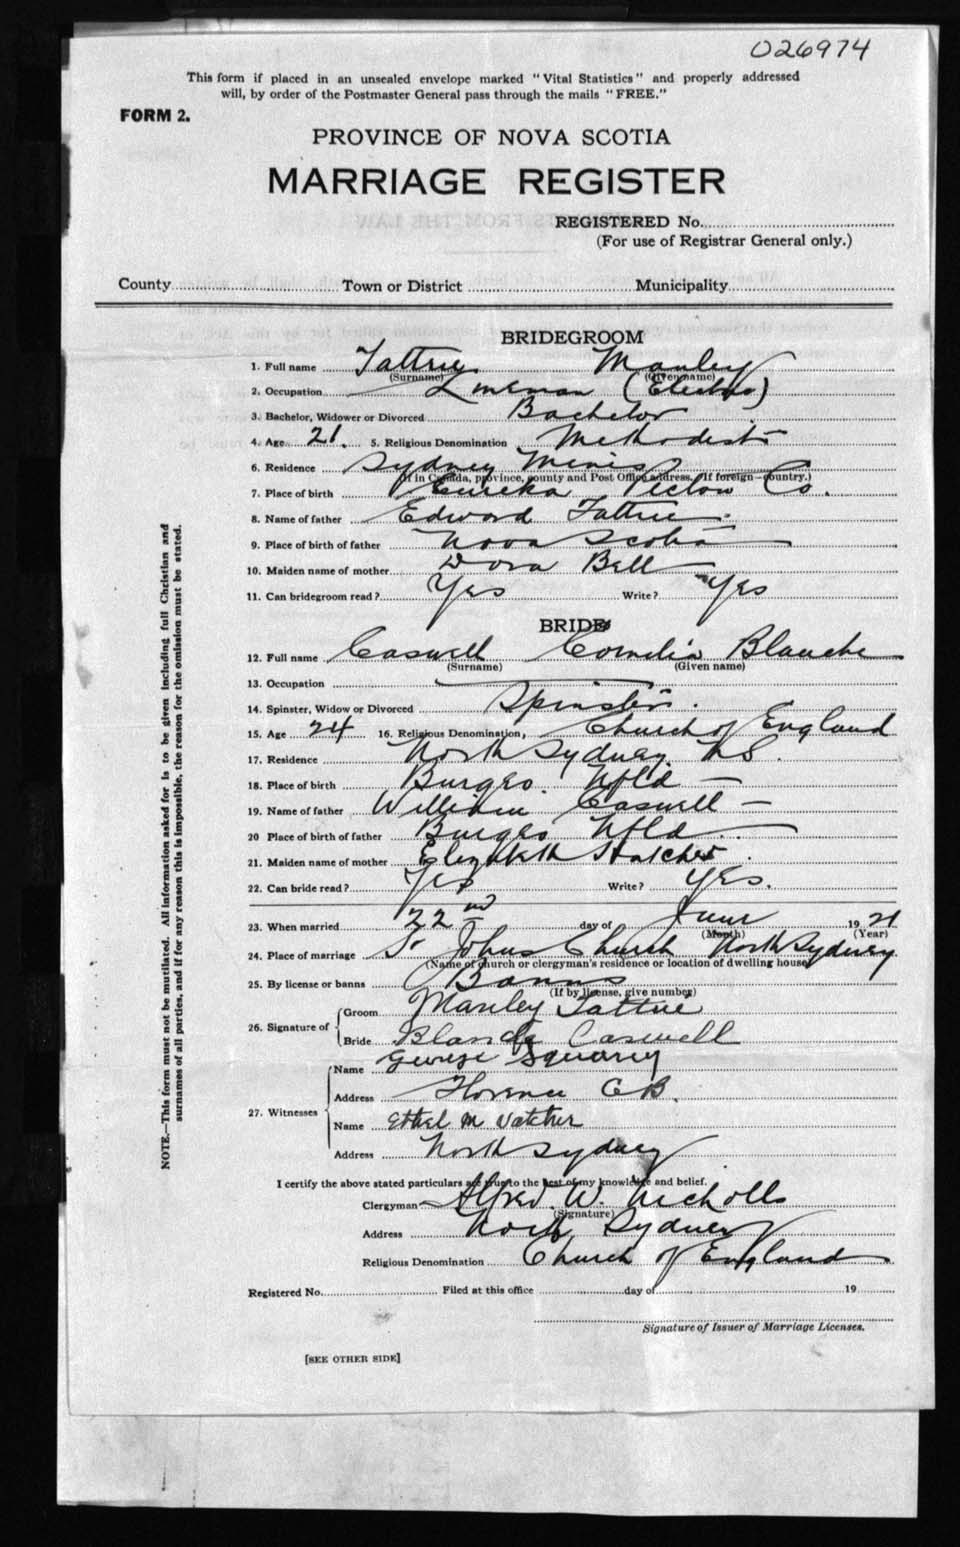 026974
This form if placed in an unsealed envelope marked "Vital Statistics" and properly addressed
will, by order of the Postmaster General pass through the mails "FREE."
FORM 2.
PROVINCE OF NOVA SCOTIA
MARRIAGE REGISTER
REGISTERED No.
(For use of Registrar General only.)
County Town or District Municipality
BRIDEGROOM
1. Full name Tattrie Manley
(Surname) (Given name)
2. Occupation Lineman (Electric)
3. Bachelor, Widower or Divorced Bachelor
4. Age 21. 5. Religious Denomination Methodist
6. Residence Sydney Mines
(If in Canada, province, county and Post Office address. If foreign—country.)
7. Place of birth Eureka Pictou Co.
8. Name of father Edward Tattrie
9. Place of birth of father Nova Scotia
10. Maiden name of mother Dora Bell
11. Can bridegroom read? Yes Write? Yes
BRIDE
12. Full name Caswell Cornelia Blanche
(Surname) (Given name)
13. Occupation
14. Spinster, Widow or Divorced Spinster
15. Age 24 16. Religious Denomination, Church of England
17. Residence North Sydney N.S.
18. Place of birth Burgeo. Nfld —
19. Name of father William Caswell —
20 Place of birth of father Burgeo Nfld. —
21. Maiden name of mother Elizabeth Hatcher.
22. Can bride read? Yes Write? Yes.
23. When married 22nd day of June 1921
(Month) (Year)
24. Place of marriage St Johns Church North Sydney
(Name of church or clergyman's residence or location of dwelling house)
25. By license or banns Banns
(If by license, give number)
26. Signature of Groom Manley Tattrie
Bride Blanche Caswell
27. Witnesses Name George Squarry
Address Florence C.B.
Name Ethel M Vatcher
Address North Sydney
I certify the above stated particulars are true to the best of my knowledge and belief.
Clergyman Alfred. W. Nicholls
(Signature)
Address North Sydney
Religious Denomination Church of England
Registered No. Filed at this office day of 19
Signature of Issuer of Marriage Licenses.
[SEE OTHER SIDE]
NOTE.—This form must not be mutilated. All information asked for is to be given including full Christian and
surnames of all parties, and if for any reason this is impossible, the reason for the omission must be stated.